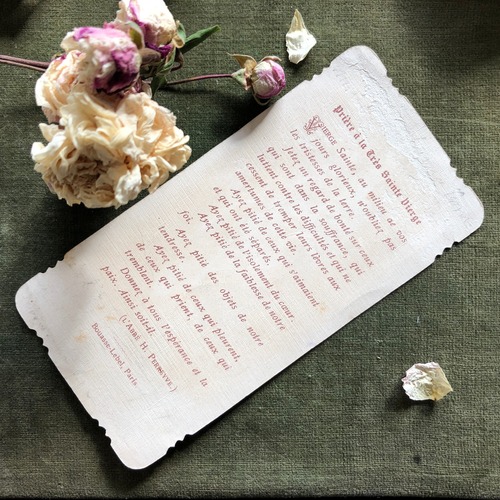 Prière à la Très Sainte Vierge
VIERGE Sainte, au milieu de vos
jours glorieux, n'oubliez pas
les tristesses de la terre.
Jetez un regard de bonté sur ceux
qui sont dans la souffrance, qui
luttent contre les difficultés et qui ne
cessent de tremper leurs lèvres aux
amertumes de cette vie.
Ayez pitié de ceux qui s'aimaient
et qui ont été séparés.
Ayez pitié de l'isolement du cœur.
Ayez pitié de la faiblesse de notre
foi.
Ayez pitié des objets de notre
tendresse.
Ayez pitié de ceux qui pleurent,
de ceux qui prient, de ceux qui
tremblent.
Donnez à tous l'espérance et la
paix. Ainsi soit-il.
(L'ABBÉ H. PERREYVE.)
Bouasse-Lebel, Paris